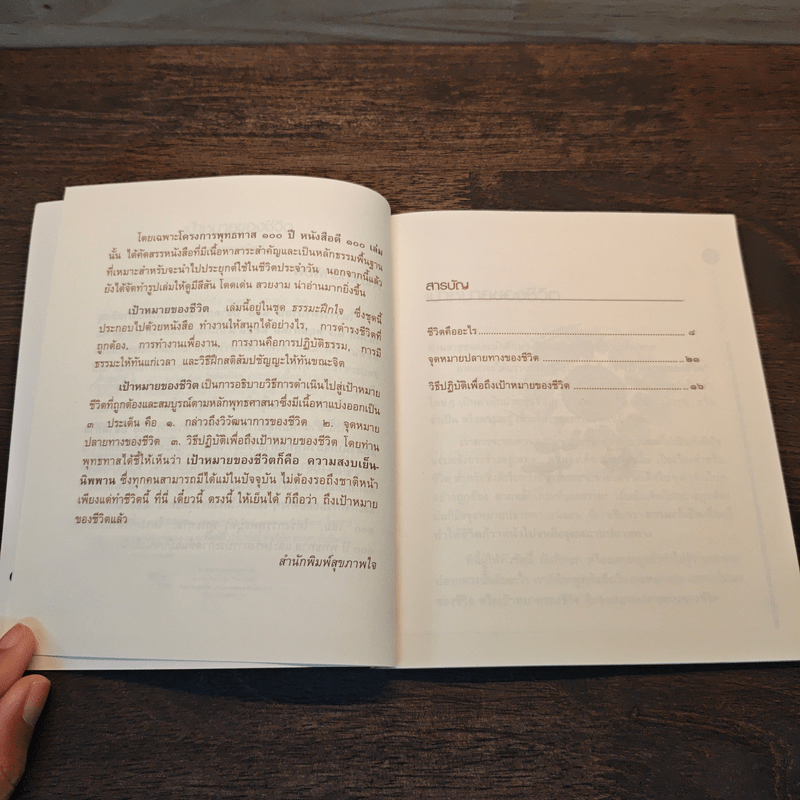 โดยเฉพาะโครงการพุทธทาส ๑๐๐ ปี หนังสือดี ๑๐๐ เล่ม
นั้น ได้คัดสรรหนังสือที่มีเนื้อหาสาระสำคัญและเป็นหลักธรรมพื้นฐาน
ที่เหมาะสำหรับจะนำไปประยุกต์ใช้ในชีวิตประจำวัน นอกจากนี้แล้ว
ยังได้จัดทำรูปเล่มให้ดูมีสีสัน โดดเด่น สวยงาม น่าอ่านมากยิ่งขึ้น
เป้าหมายของชีวิต เล่มนี้อยู่ในชุด ธรรมะฝึกใจ ซึ่งชุดนี้
ประกอบไปด้วยหนังสือ ทำงานให้สนุกได้อย่างไร, การดำรงชีวิตที่
ถูกต้อง, การทำงานเพื่องาน, การงานคือการปฏิบัติธรรม, การมี
ธรรมะให้ทันแก่เวลา และวิธีฝึกสติสัมปชัญญะให้ทันขณะจิต
เป้าหมายของชีวิต เป็นการอธิบายวิธีการดำเนินไปสู่เป้าหมาย
ชีวิตที่ถูกต้องและสมบูรณ์ตามหลักพุทธศาสนาซึ่งมีเนื้อหาแบ่งออกเป็น
๓ ประเด็น คือ ๑. กล่าวถึงวิวัฒนาการของชีวิต ๒. จุดหมาย
ปลายทางของชีวิต ๓. วิธีปฏิบัติเพื่อถึงเป้าหมายของชีวิต โดยท่าน
พุทธทาสได้ชี้ให้เห็นว่า เป้าหมายของชีวิตก็คือ ความสงบเย็น-
นิพพาน ซึ่งทุกคนสามารถมีได้แม้ในปัจจุบัน ไม่ต้องรอถึงชาติหน้า
เพียงแต่ทำชีวิตนี้ ที่นี่ เดี๋ยวนี้ ตรงนี้ ให้เย็นได้ ก็ถือว่า ถึงเป้าหมาย
ของชีวิตแล้ว
สำนักพิมพ์สุขภาพใจ
สารบัญ
ชีวิตคืออะไร ๘
จุดหมายปลายทางของชีวิต ๒๑
วิธีปฏิบัติเพื่อถึงเป้าหมายของชีวิต